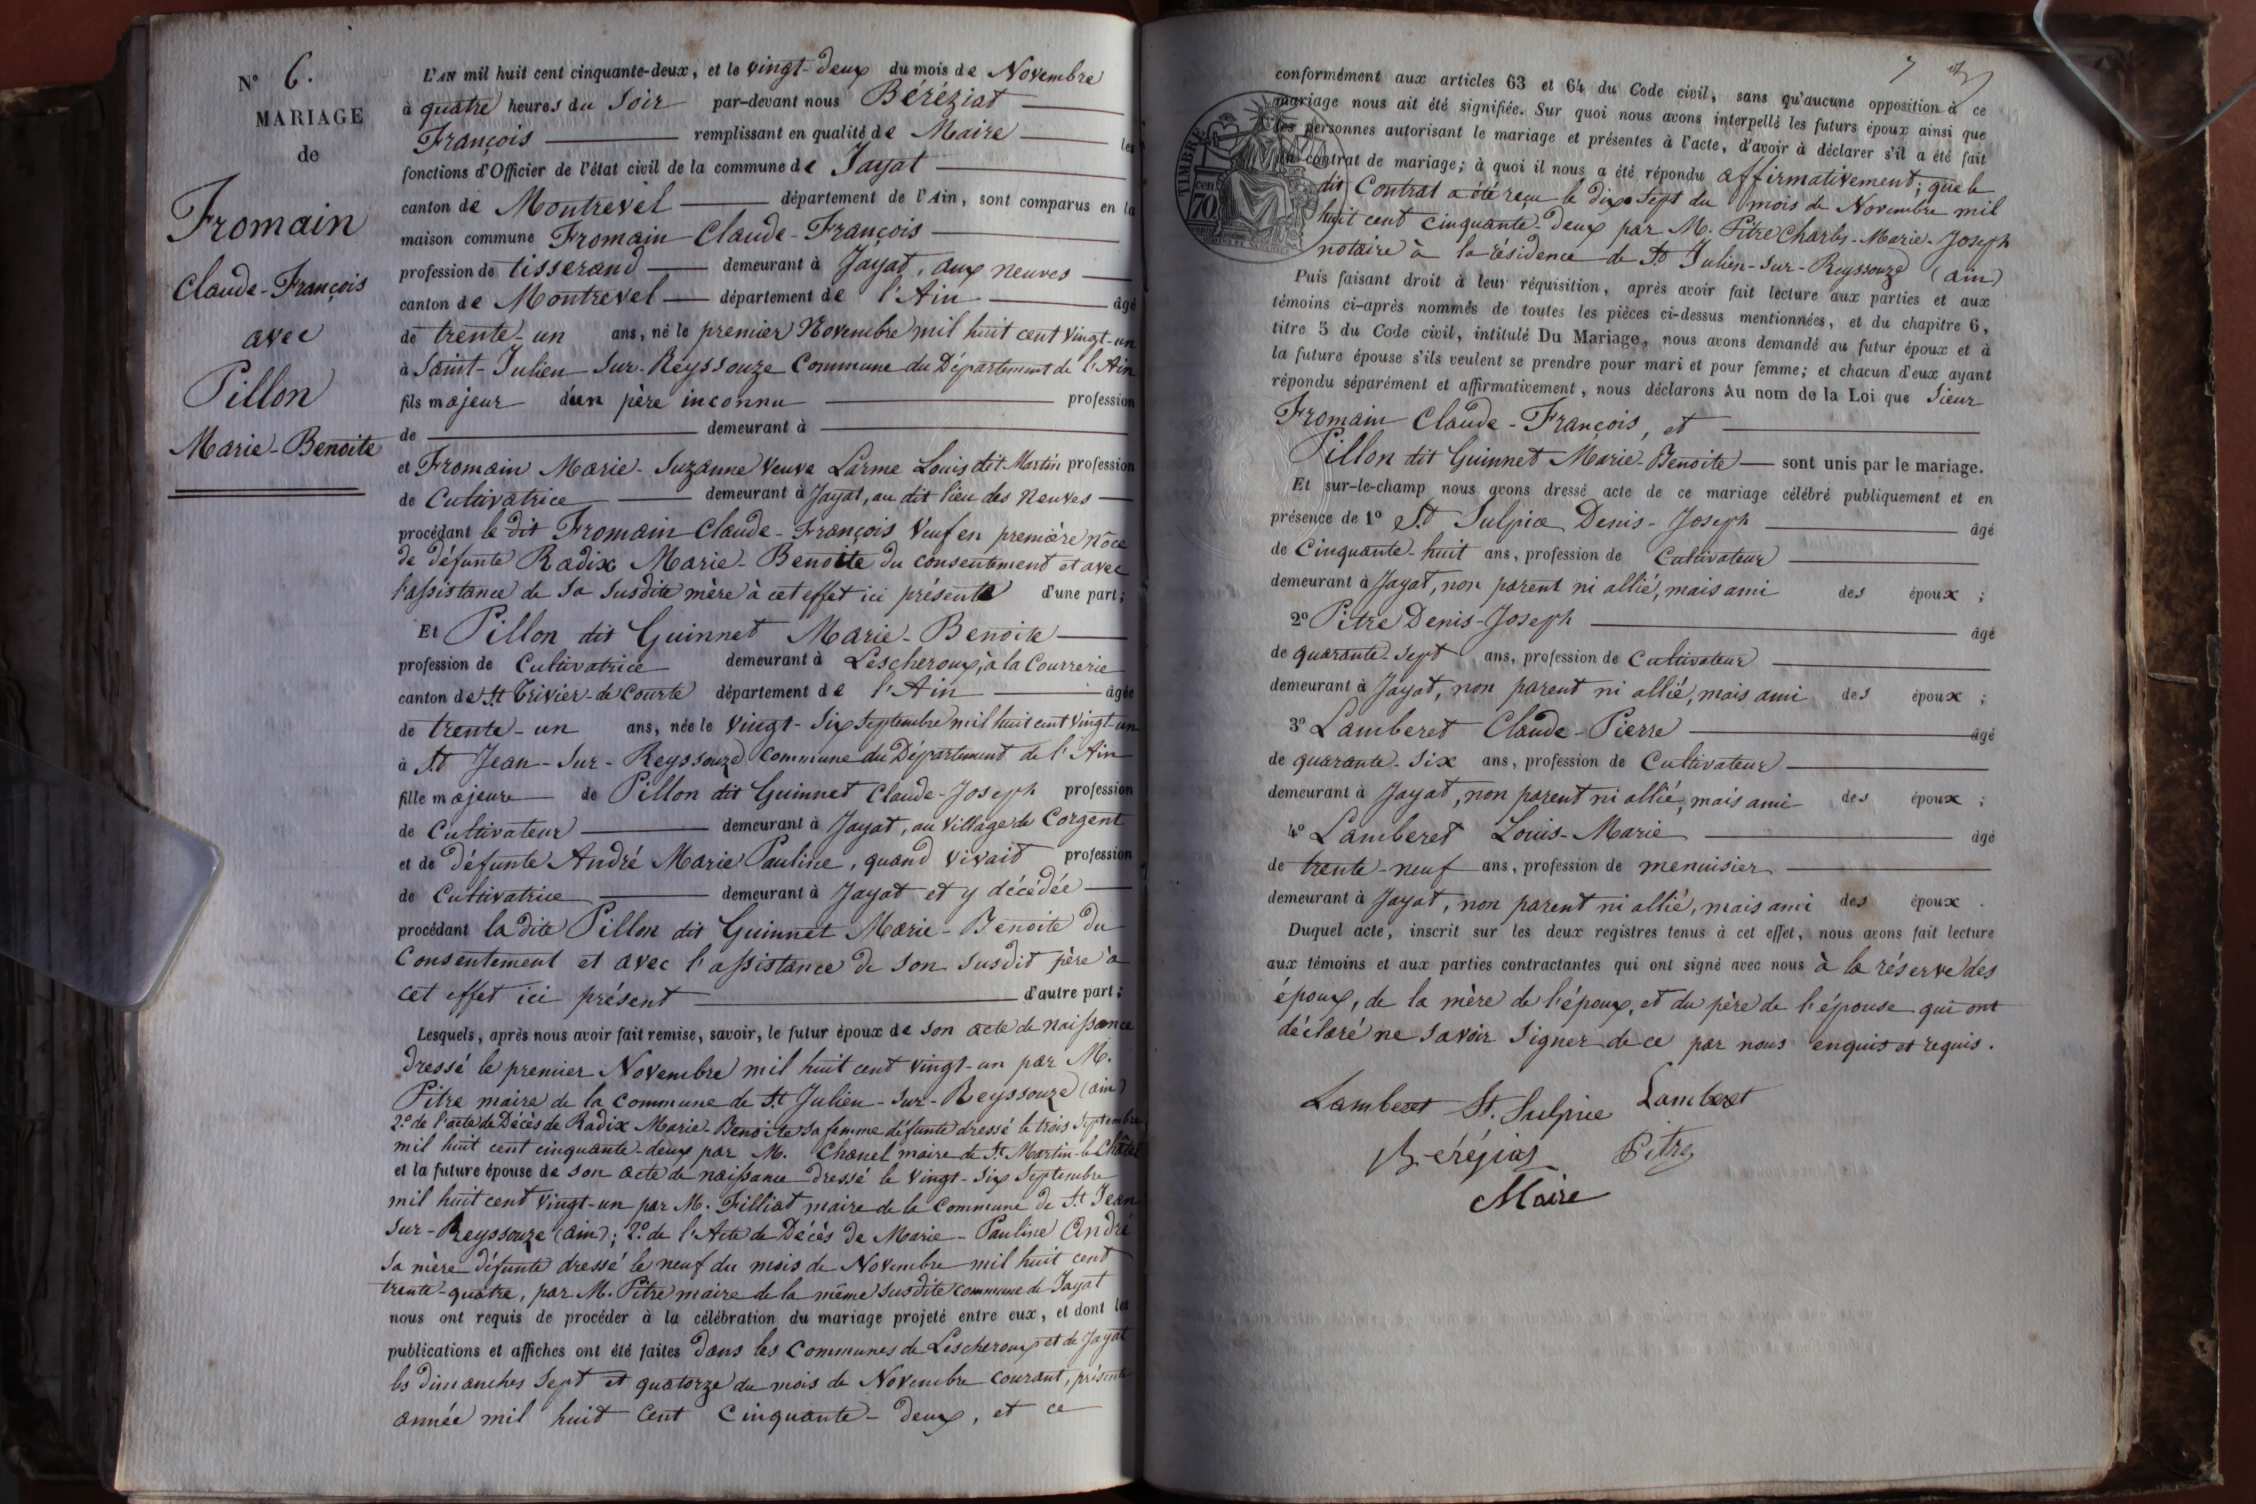 N° 6.
MARIAGE
de
Fromain
Claude-François
avec
Pillon
Marie-Benoite
L'AN mil huit cent cinquante-deux, et le vingt-deux du mois de Novembre
à quatre heures du soir par-devant nous Béréziat
François remplissant en qualité de Maire les
fonctions d'Officier de l'état civil de la commune de Jayat
canton de Montrevel département de l'Ain, sont comparus en la
maison commune Fromain Claude-François
profession de tisserand demeurant à Jayat, aux neuves
canton de Montrevel département de l'Ain âgé
de trente-un ans, né le premier Novembre mil huit cent vingt-un
à Saint-Julien-sur-Reyssouze Commune du Département de l'Ain
fils majeur d'un père inconnu profession
de demeurant à
et Fromain Marie-Suzanne veuve Larme Louis dit Martin profession
de Cultivatrice demeurant à Jayat, au dit lieu des Neuves
procédant le dit Fromain Claude-François veuf en première nôce
de défunte Radix Marie-Benoite du consentement et avec
l'assistance de sa susdite mère à cet effet ici présente d'une part;
Et Pillon dit Guinnet Marie-Benoite
profession de Cultivatrice demeurant à Lescheroux, à la Courrerie
canton de St Trivier-de-Courte département de l'Ain âgée
de trente-un ans, née le vingt-six septembre mil huit cent vingt-un
à St Jean-sur-Reyssouze commune du Département de l'Ain
fille majeure de Pillon dit Guinnet Claude-Joseph profession
de Cultivateur demeurant à Jayat, au village de Corgent
et de défunte André Marie Pauline, quand vivait profession
de Cultivatrice demeurant à Jayat et y décédée
procédant la dite Pillon dit Guinnet Marie-Benoite du
Consentement et avec l'assistance de son susdit père à
cet effet ici présent d'autre part;
Lesquels, après nous avoir fait remise, savoir, le futur époux de son acte de naissance
dressé le premier Novembre mil huit cent vingt-un par M.
Pitre maire de la commune de St Julien-sur-Reyssouze (ain)
2° de l'acte de Décès de Radix Marie-Benoite sa femme défunte dressé le trois Septembre
mil huit cent cinquante-deux par M. Chanel maire de St Martin-le-Châtel
et la future épouse de son acte de naissance dressé le vingt-six Septembre
mil huit cent vingt-un par M. Filliat maire de la Commune de St Jean
sur-Reyssouze (ain); 2° de l'Acte de Décès de Marie-Pauline André
sa mère défunte dressé le neuf du mois de Novembre mil huit cent
trente-quatre, par M. Pitre maire de la même susdite commune de Jayat
nous ont requis de procéder à la célébration du mariage projeté entre eux, et dont les
publications et affiches ont été faites dans les Communes de Lescheroux et de Jayat
les dimanches sept et quatorze du mois de Novembre courant, présente
année mil huit cent cinquante-deux, et ce
7
TIMBRE
cen 70
conformément aux articles 63 et 64 du Code civil, sans qu'aucune opposition à ce
mariage nous ait été signifiée. Sur quoi nous avons interpellé les futurs époux ainsi que
les personnes autorisant le mariage et présentes à l'acte, d'avoir à déclarer s'il a été fait
un contrat de mariage; à quoi il nous a été répondu affirmativement, que le
dit Contrat a été reçu le dix-sept du mois de Novembre mil
huit cent cinquante-deux par M. Pitre Charles-Marie-Joseph
notaire à la résidence de St Julien-sur-Reyssouze (ain)
Puis faisant droit à leur réquisition, après avoir fait lecture aux parties et aux
témoins ci-après nommés de toutes les pièces ci-dessus mentionnées, et du chapitre 6,
titre 5 du Code civil, intitulé Du Mariage, nous avons demandé au futur époux et à
la future épouse s'ils veulent se prendre pour mari et pour femme; et chacun d'eux ayant
répondu séparément et affirmativement, nous déclarons Au nom de la Loi que sieur
Fromain Claude-François, et
Pillon dit Guinnet Marie-Benoite sont unis par le mariage.
Et sur-le-champ nous avons dressé acte de ce mariage célébré publiquement et en
présence de 1° St Sulpice Denis-Joseph âgé
de Cinquante-huit ans, profession de Cultivateur
demeurant à Jayat, non parent ni allié, mais ami des époux ;
2° Pitre Denis-Joseph âgé
de quarante-sept ans, profession de Cultivateur
demeurant à Jayat, non parent ni allié, mais ami des époux ;
3° Lamberet Claude-Pierre âgé
de quarante-six ans, profession de Cultivateur
demeurant à Jayat, non parent ni allié, mais ami des époux ;
4° Lamberet Louis-Marie âgé
de trente-neuf ans, profession de menuisier
demeurant à Jayat, non parent ni allié, mais ami des époux .
Duquel acte, inscrit sur les deux registres tenus à cet effet, nous avons fait lecture
aux témoins et aux parties contractantes qui ont signé avec nous à la réserve des
époux, de la mère de l'époux, et du père de l'épouse qui ont
déclaré ne savoir signer de ce par nous enquis et requis.
Lamberet St. Sulpice Lamberet
Béréziat Pitre
Maire